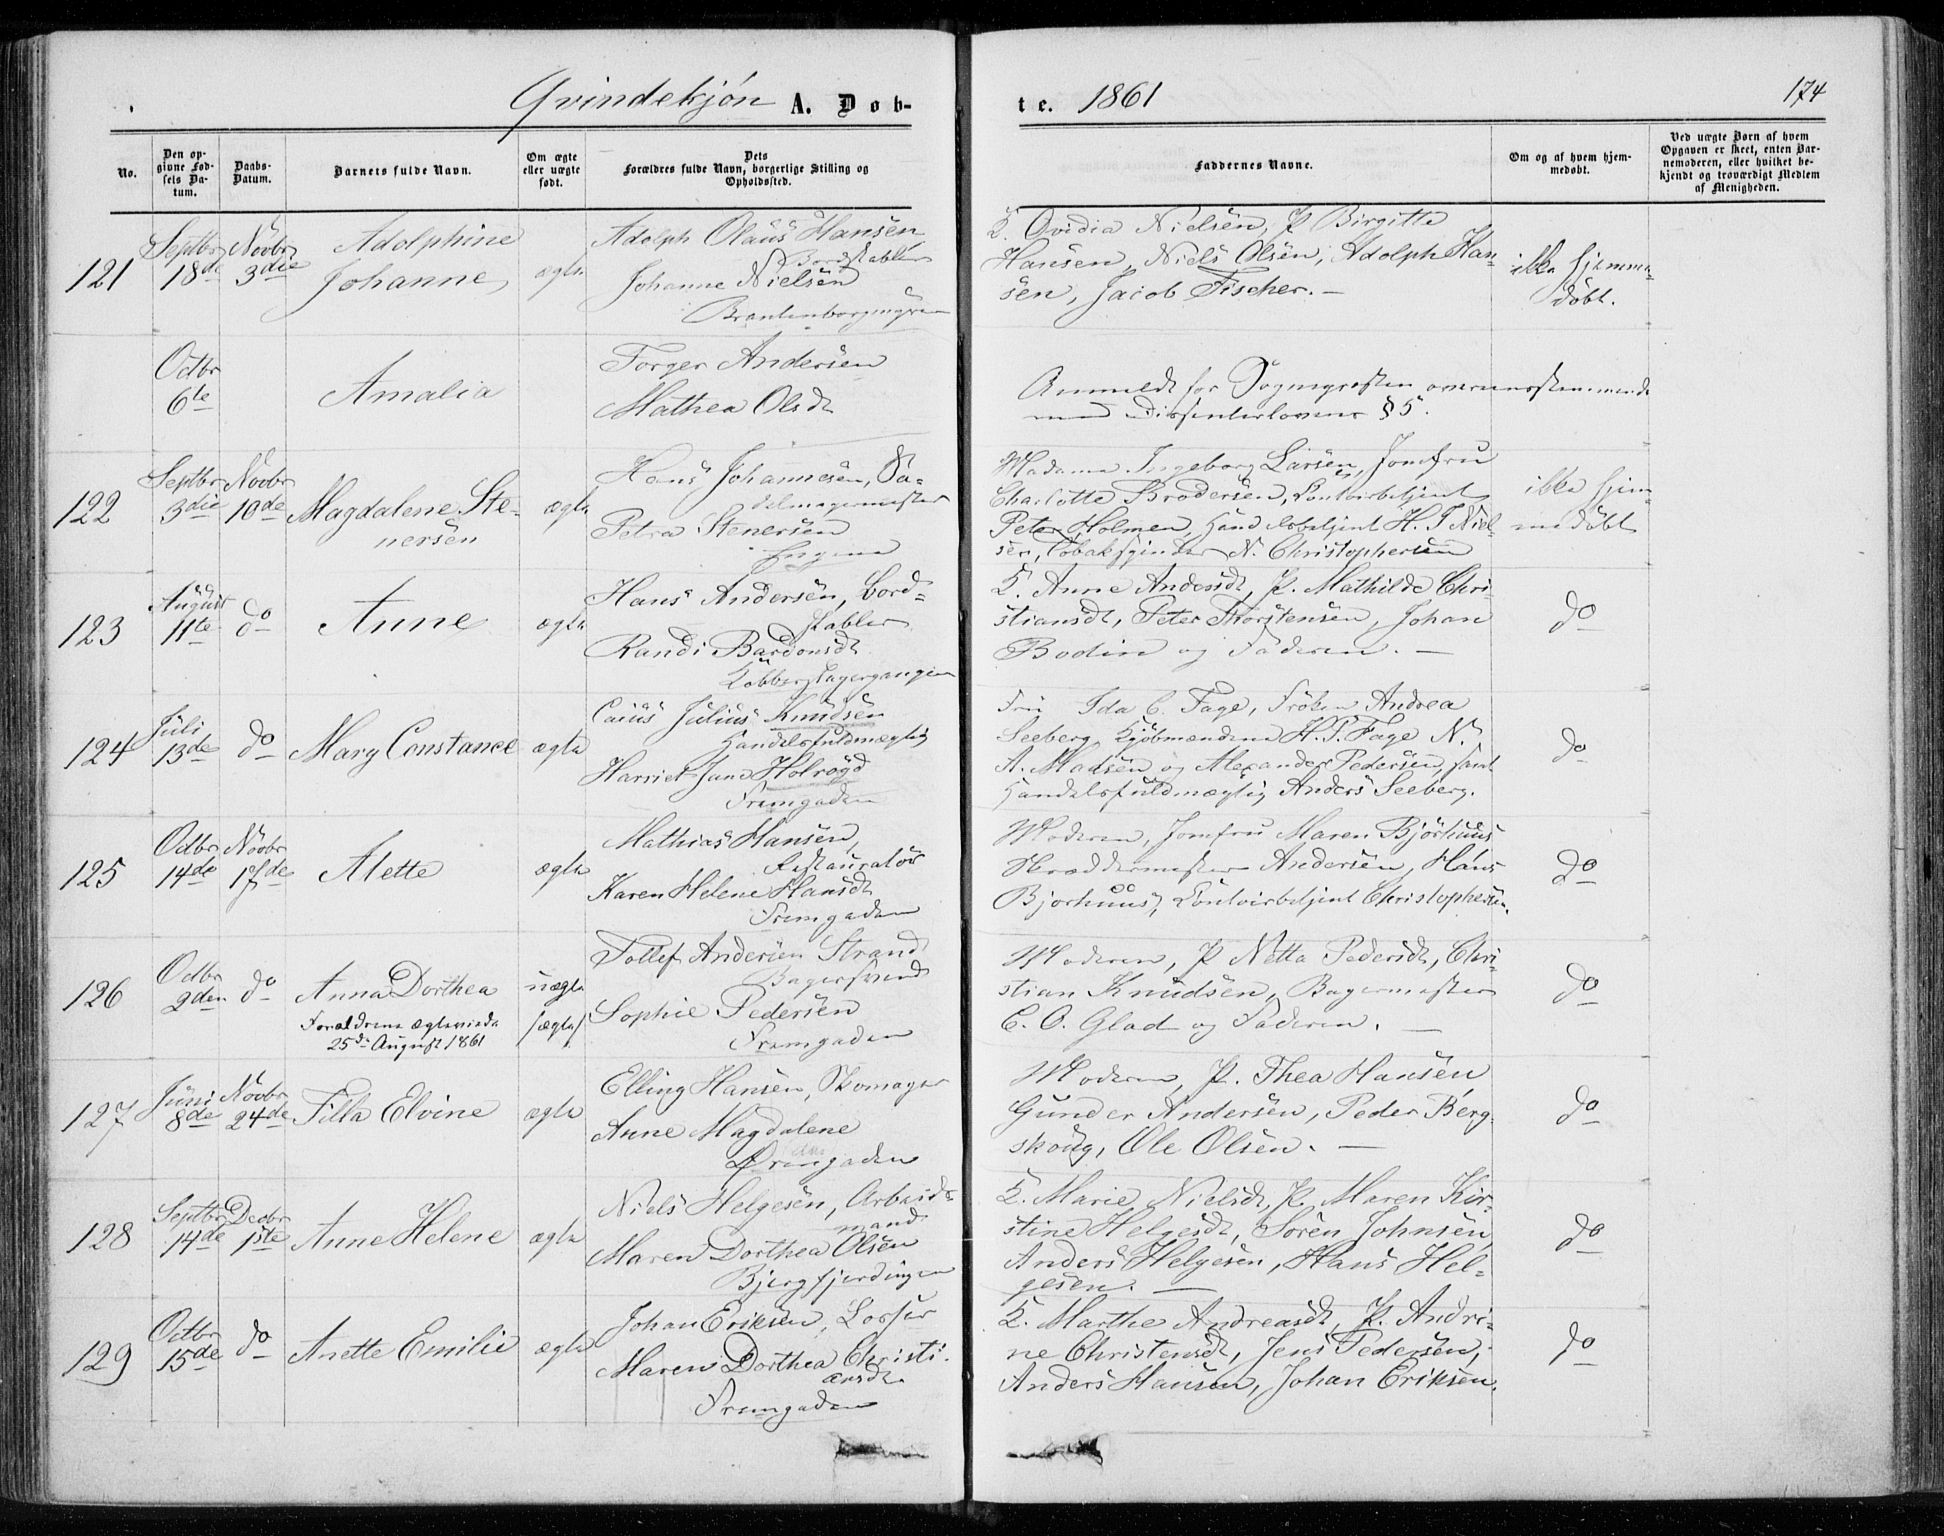 Qvindekjøn A. Døb-
te. 1861
174
No.
Den op-
givne Fød-
sels Da-
tum.
Daabs-
Datum.
Barnets fulde Navn.
Om ægte
eller uægte
født.
Dets
Forældres fulde Navn, borgerlige Stilling og
Opholdssted.
Faddernes Navne.
Om og af hvem hjem-
medøbt.
Ved uægte Børn af hvem
Opgaven er skeet, enten Bar-
nemoderen, eller hvilket be-
kjendt og troværdigt Medlem
af Menigheden.
121
Septbr
18de
Novbr
3die
Adolphine
Johanne
ægte
Adolph Olaus Hansen
Bordstabler
Johanne Nielsen
K. Ovidia Nielsen, P. Birgitte
Hansen, Niels Olsen, Adolph Han-
sen, Jacob Fischer. —
ikke hjemme-
døbt.
Octbr
6te
Amalia
Torger Andersen
Mathea Olsdt
Anmeldt for Sognepresten overensstemmende
med Dissenterlovens § 5.
122
Septbr
3die
Novbr
10de
Magdalene Ste-
nersen
ægte
Hans Johannesen, Sa-
delmagermester
Petra Stenersen
Engene
Madame Ingeborg Larsen, Jomfru
Charlotte Brodersen, Contoirbetjent
Peter Holmen, Handelsbetjent H. T. Niel-
sen, Tobakspinder N. Christophersen
ikke hjem-
medøbt
123
August
11te
do
Anne
ægte
Hans Andersen, Bord-
stabler
Randi Bardonsdt
K. Anne Andersdt, P. Mathilde Chri-
stiansdt, Peter Thorstensen, Johan
Bodin og Faderen. —
do
124
Juli
13de
do
Mary Constance
ægte
Caius Julius Knudsen
Handelsfuldmægtig
Harriet Jane Holroyd
Strømgaden
Fru Ida C. Fage, Frøken Andrea
Seeberg, Kjøbmændene H. P. Fage, N.
A. Madsen og Alexander Pedersen, samt
Handelsfuldmægtig Anders Seeberg.
do
125
Octbr
14de
Novbr
17de
Alette
ægte
Mathias Hansen,
Restauratør
Karen Helene Hansdt
Strømgaden
Moderen, Jomfru Maren Bjørhuus
Skræddermester Andersen, Hans
Bjørhuus, Contoirbetjent Christophersen.
do
126
Octbr
2den
do
Anna Dorthea
Forældrene ægteviede
25de August 1861
uægte
/ægte/
Tollef Andersen Strand
Bagersvend
Sophie Pedersen
Strømgaden
Moderen, P. Netta Pedersdt, Chri-
stian Knudsen, Bagermester
C. O. Glad og Faderen. —
do
127
Juni
8de
Novbr
24de
Tilla Elvine
ægte
Elling Hansen, Skomager
Anne Magdalene
Moderen, P. Thea Hansen
Gunder Andersen, Peder Berg-
skoug, Ole Olsen. —
do
128
Septbr
14de
Decbr
1ste
Anne Helene
ægte
Niels Helgesen, Arbeids-
mand
Maren Dorthea Olsen
Bjergfjerdingen
K. Marie Nielsdt, P. Maren Kir-
stine Helgesdt, Søren Johnsen,
Anders Helgesen, Hans Hel-
gesen. —
do
129
Octbr
15de
do
Anette Emilie
ægte
Johan Eriksen, Losser
Maren Dorthea Christi-
ansdt
Strømgaden
K. Marthe Andreasdt, P. Andri-
ne Christensdt, Jens Pedersen,
Anders Hansen, Johan Eriksen.
do